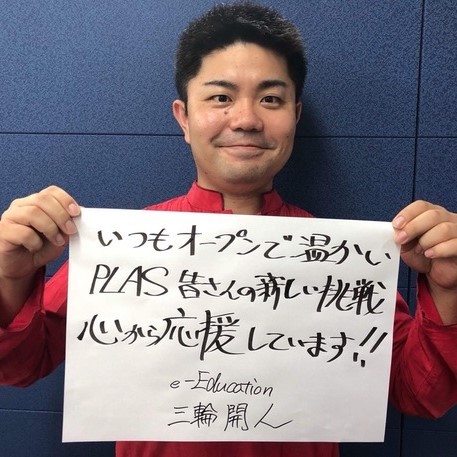 いつもオープンで温かい
PLAS 皆さんの新しい挑戦
心から応援しています!!
e-Education
三輪開人